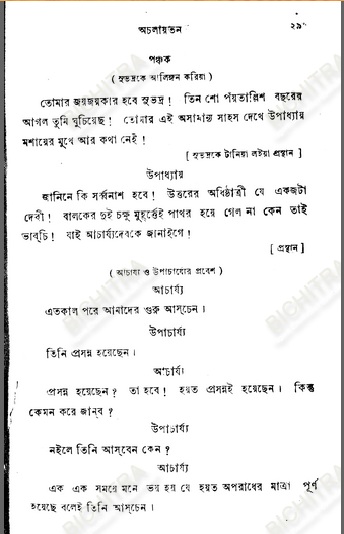 অচলায়তন ২৯
পঞ্চক
( সুভদ্রকে আলিঙ্গন করিয়া )
তোমার জয়জয়কার হবে সুভদ্র ! তিন শো পঁয়তাল্লিশ বছরের
আগল তুমি ঘুচিয়েছ ! তোমার এই অসামান্য সাহস দেখে উপাধ্যায়
মশায়ের মুখে আর কথা নেই !
[ সুভদ্রকে টানিয়া লইয়া প্রস্থান ]
উপাধ্যায়
জানিনে কি সর্ব্বনাশ হবে ! উত্তরের অধিষ্ঠাত্রী যে একজটা
দেবী ! বালকের দুই চক্ষু মুহূর্ত্তেই পাথর হয়ে গেল না কেন তাই
ভাব্‌চি ! যাই আচার্য্যদেবকে জানাইগে !
[ প্রস্থান ]
( আচার্য্য ও উপাচার্য্যের প্রবেশ )
আচার্য্য
এতকাল পরে আমাদের গুরু আস্‌চেন ।
উপাচার্য্য
তিনি প্রসন্ন হয়েছেন ।
আচার্য্য
প্রসন্ন হয়েছেন ? তা হবে ! হয়ত প্রসন্নই হয়েছেন । কিন্তু
কেমন করে জান্‌ব ?
উপাচার্য্য
নইলে তিনি আস্‌বেন কেন ?
আচার্য্য
এক এক সময়ে মনে ভয় হয় যে হয়ত অপরাধের মাত্রা পূর্ণ
হয়েছে বলেই তিনি আস্‌চেন ।
BICHITRA
BICHITRA
BICHITRA
BICHITRA